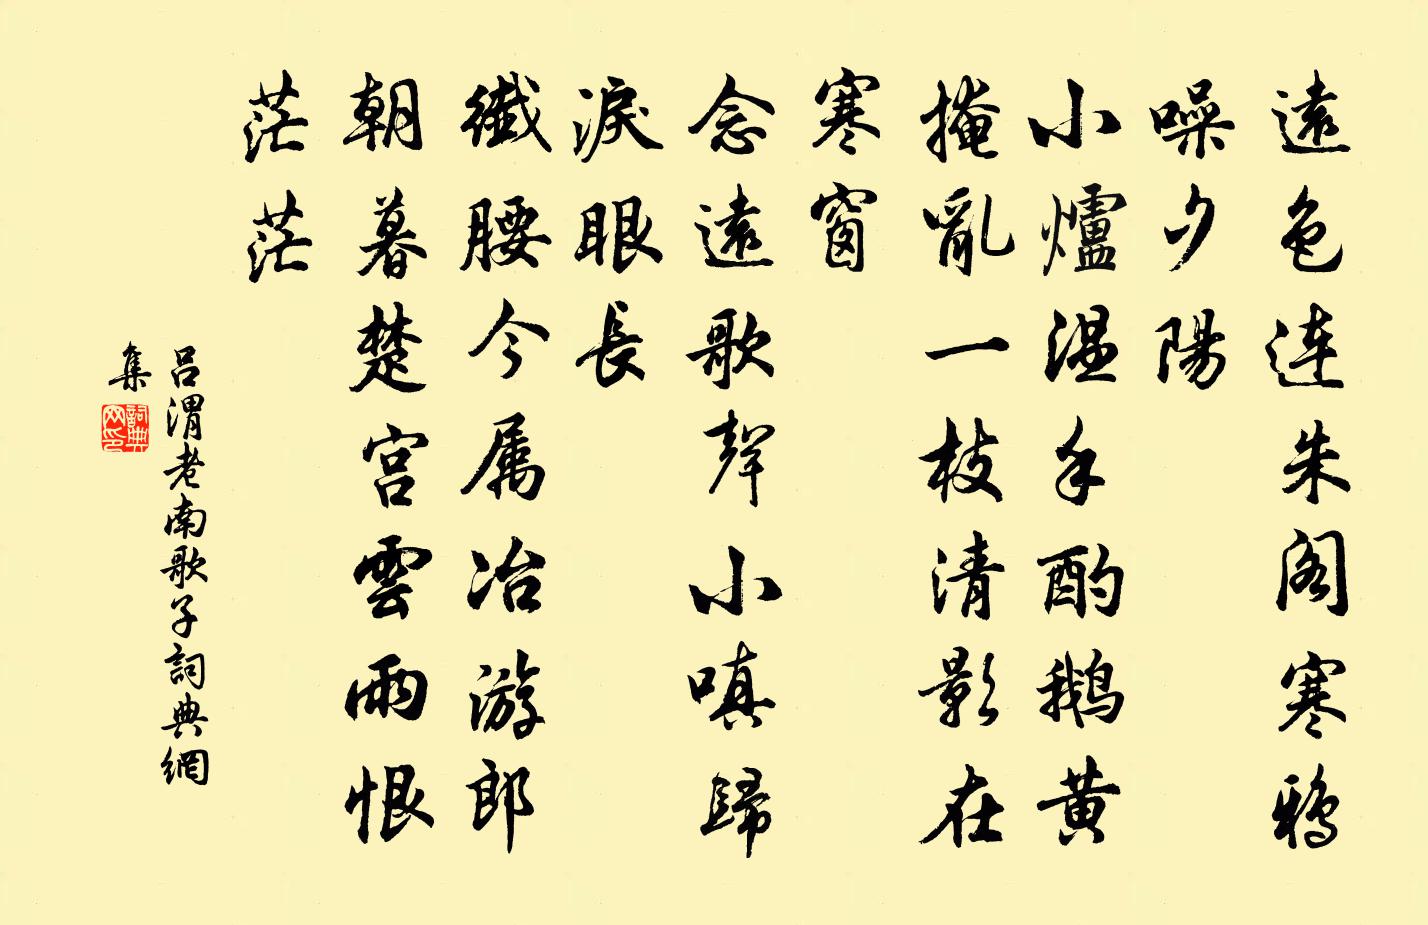 遠色连朱阁寒鸦
噪夕陽
小爐温手酌鹅黄
掩亂一枝清影在
寒窗
念遠歌聲小嗔歸
淚眼長
纖腰今属冶游郎
朝暮楚宫雲雨恨
茫茫
吕渭老南歌子詞典網
集
詞典网印